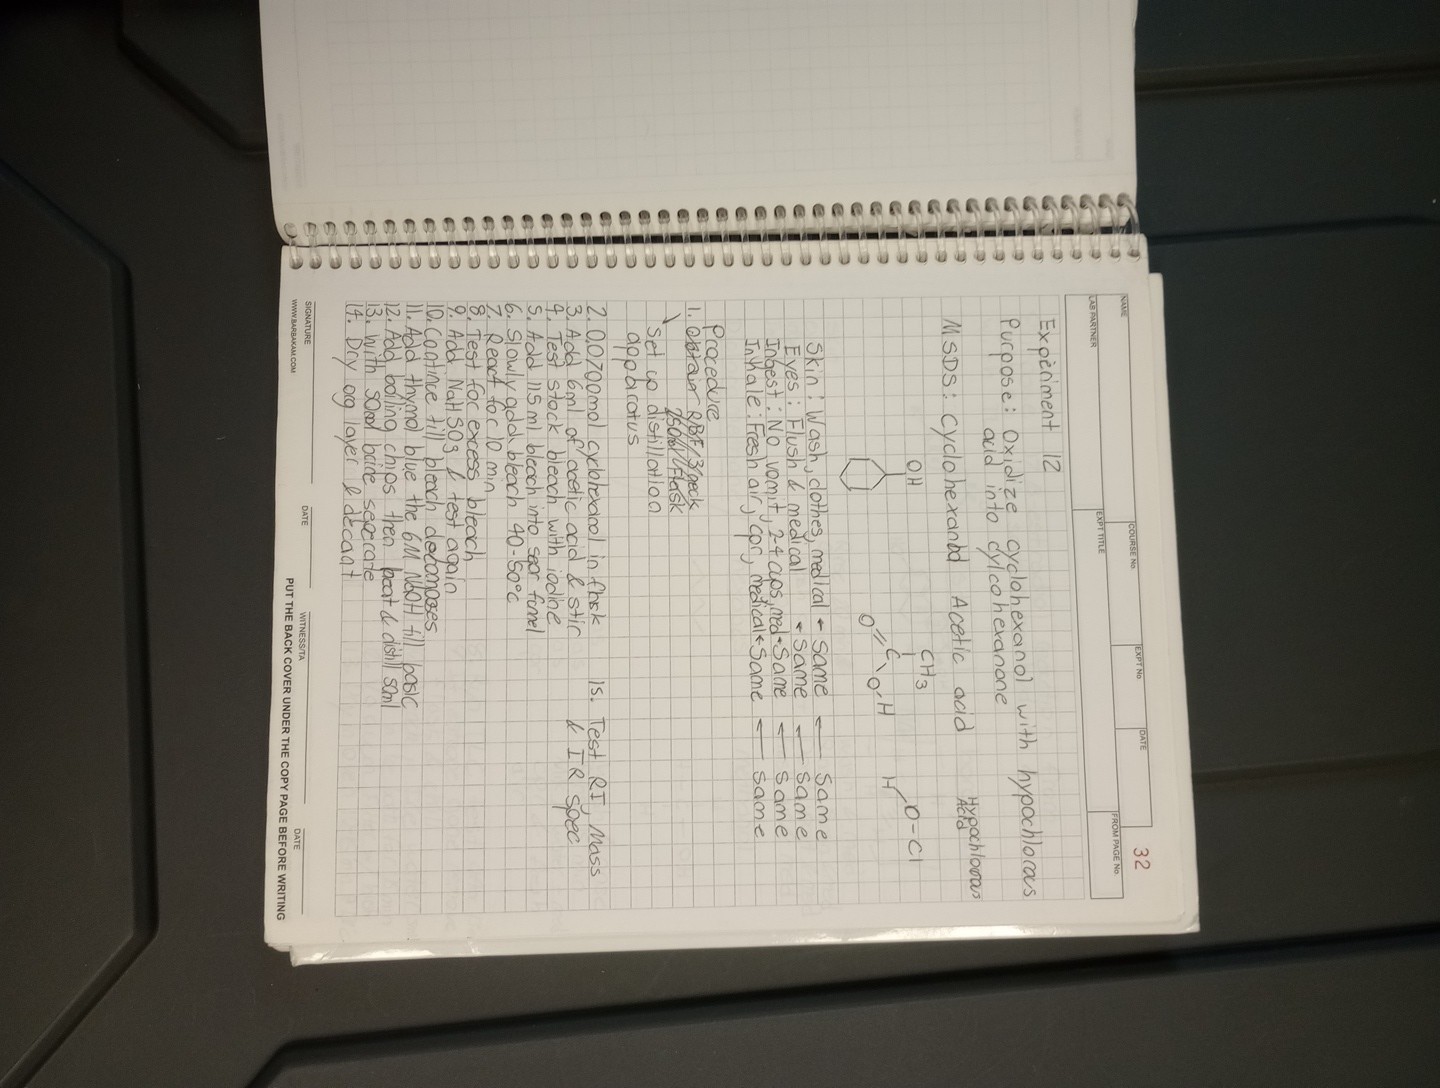 32
NAME
COURSE No.
EXPT No.
DATE
LAB PARTNER
EXPT TITLE
FROM PAGE No.
Experiment 12
Purpose: Oxidize cyclohexanol with hypochlorous
acid into cylcohexanone
MSDS: Cyclohexanol Acetic acid Hypochlorous
Acid
OH
CH3
C
O
O H
H O-Cl
Skin: Wash, clothes, medical ← Same ← Same
Eyes: Flush & medical ← Same ← Same
Ingest: No vomit, 24 cps, med ← Same ← Same
Inhale: Fresh air, cpr, medical ← Same ← Same
Procedure
1. Obtain RBF/3 neck
250ml flask
Set up distillation
apparatus
2. 0.0700mol cyclohexanol in flask
3. Add 6ml of acetic acid & stir
4. Test stock bleach with iodine
5. Add 115ml bleach into sep funnel
6. Slowly add bleach 40-50°C
7. React to 10 min
8. Test for excess bleach
9. Add NaHSO3 & test again
10. Continue till bleach decomposes
11. Add thymol blue the 6M NaOH till basic
12. Add boiling chips then heat & distill 50ml
13. With brine seperate
14. Dry org layer & decant
15. Test RI, Mass
& IR spec
SIGNATURE
DATE
WITNESS/TA
DATE
WWW.BARBAKAM.COM
PUT THE BACK COVER UNDER THE COPY PAGE BEFORE WRITING